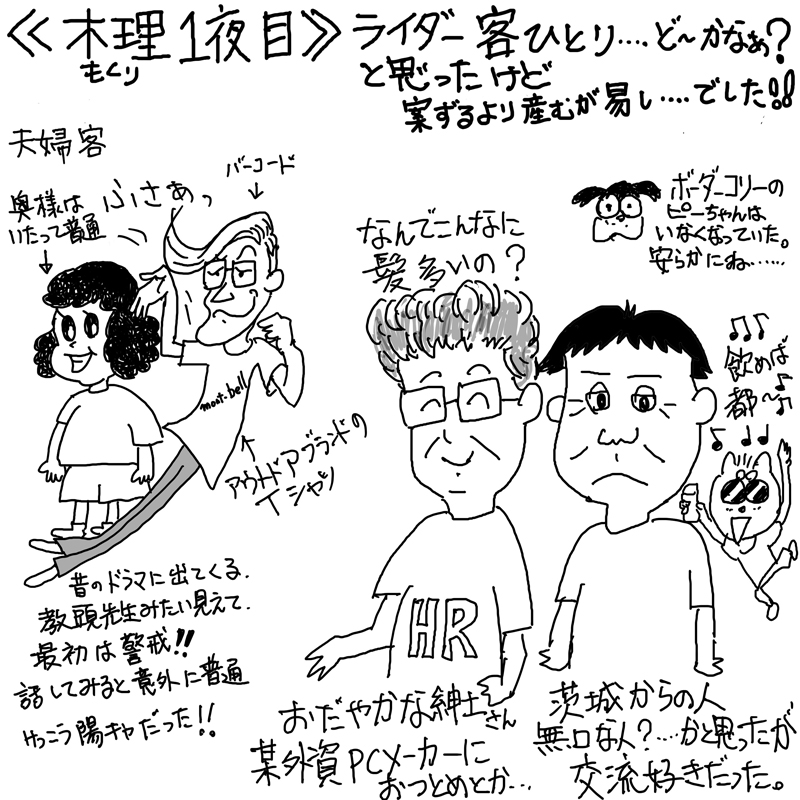 ≪木理1夜目≫ライダー客ひとり‥‥ど〜かなぁ?
もくり
と思ったけど
案ずるより産むが易し‥‥でした!!
夫婦客
バーコード
奥様は
いたって普通
ふさぁっ
mont-bell
アウトドアブランドの
Tシャツ
昔のドラマに出てくる、
教頭先生みたい見えて、
最初は警戒!!
話してみると意外に普通
けっこう陽キャだった!!
なんでこんなに
髪多いの?
HR
おだやかな紳士さん
某外資PCメーカーに
おつとめとか…
ボーダーコリーの
ピーちゃんは
いなくなっていた。
安らかにね……
♫♪♪
飲めば
都〜♪♪
♪♩♩
茨城からの人
無口な人?‥‥かと思ったが
交流好きだった。